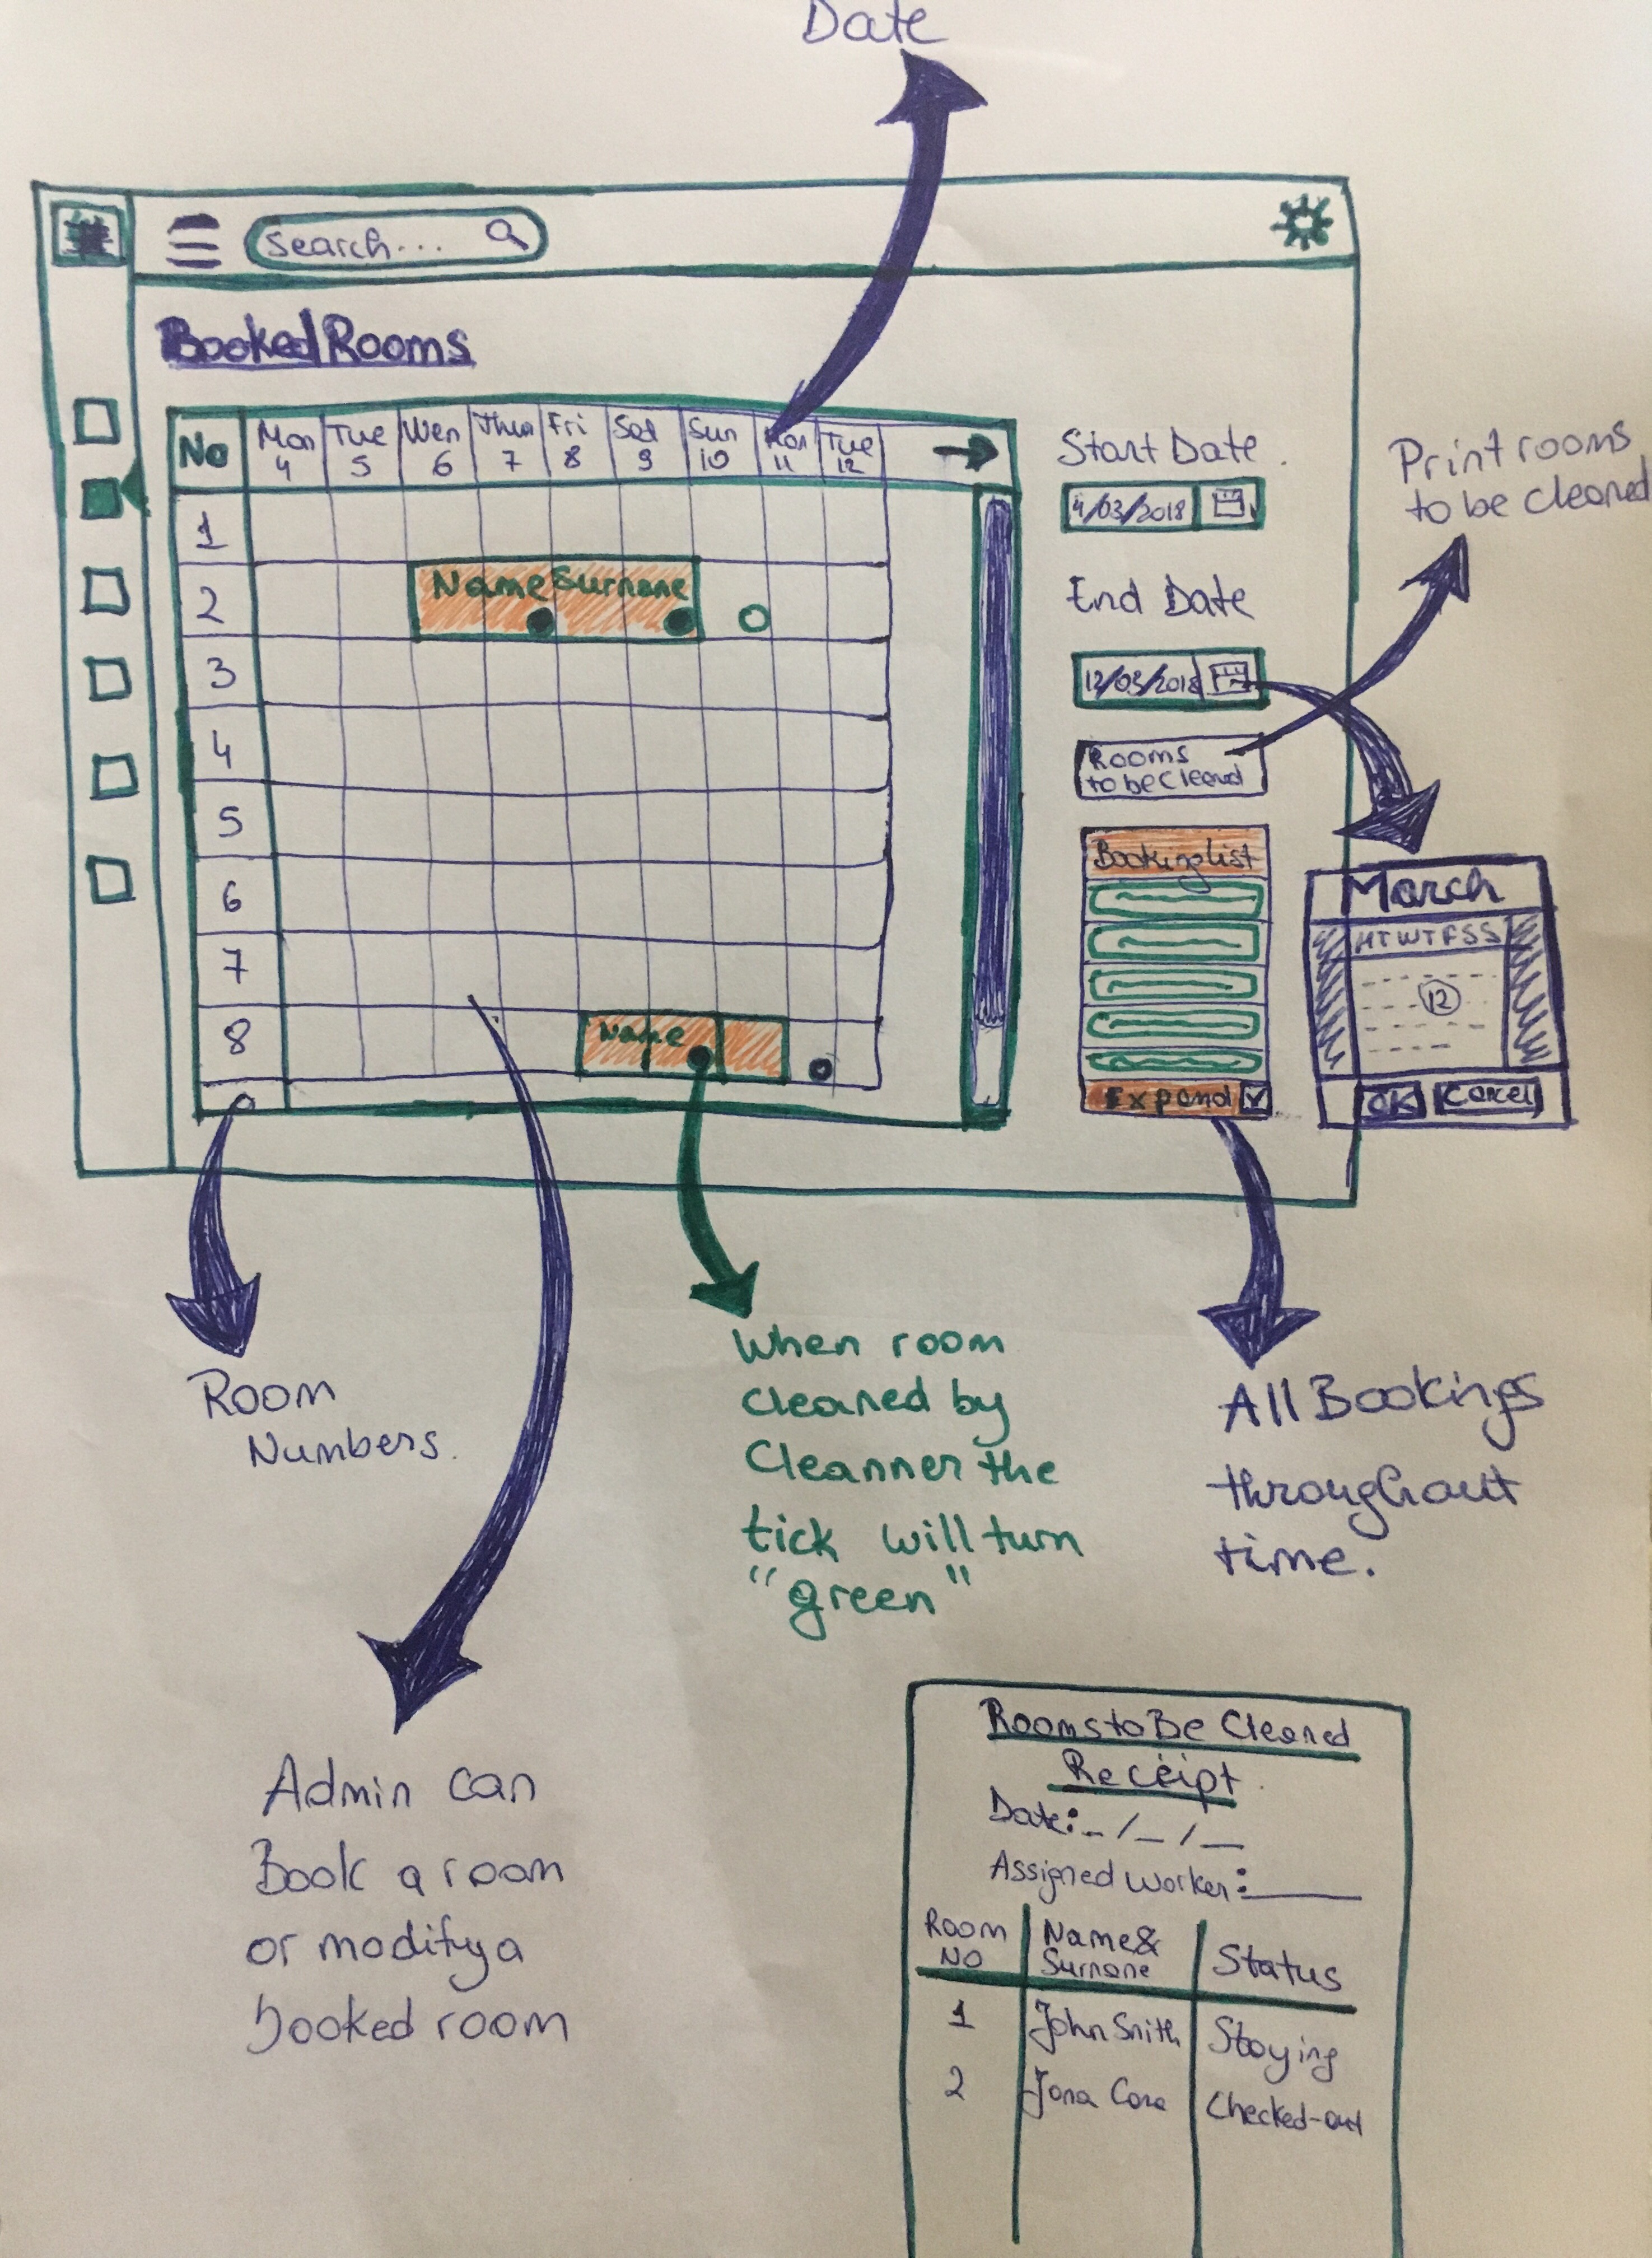 Date
Search...
Booked Rooms
No
Mon 4
Tue 5
Wen 6
Thur 7
Fri 8
Sat 9
Sun 10
Mon 11
Tue 12
1
2
3
4
5
6
7
8
Name Surname
Name
Start Date
4/03/2018
End Date
12/03/2018
Rooms
to be Cleaned
Booking list
Expend
Print rooms
to be cleaned
March
M T W T F S S
12
OK Cancel
Room
Numbers.
When room
cleaned by
Cleanner the
tick will turn
"green"
All Bookings
throughout
time.
Admin can
Book a room
or modify a
booked room
Rooms to Be Cleaned
Receipt.
Date: _ / _ / _
Assigned Worker: ______
Room
NO
Name &
Surname
Status
1 John Smith Staying
2 Jona Cone Checked-out